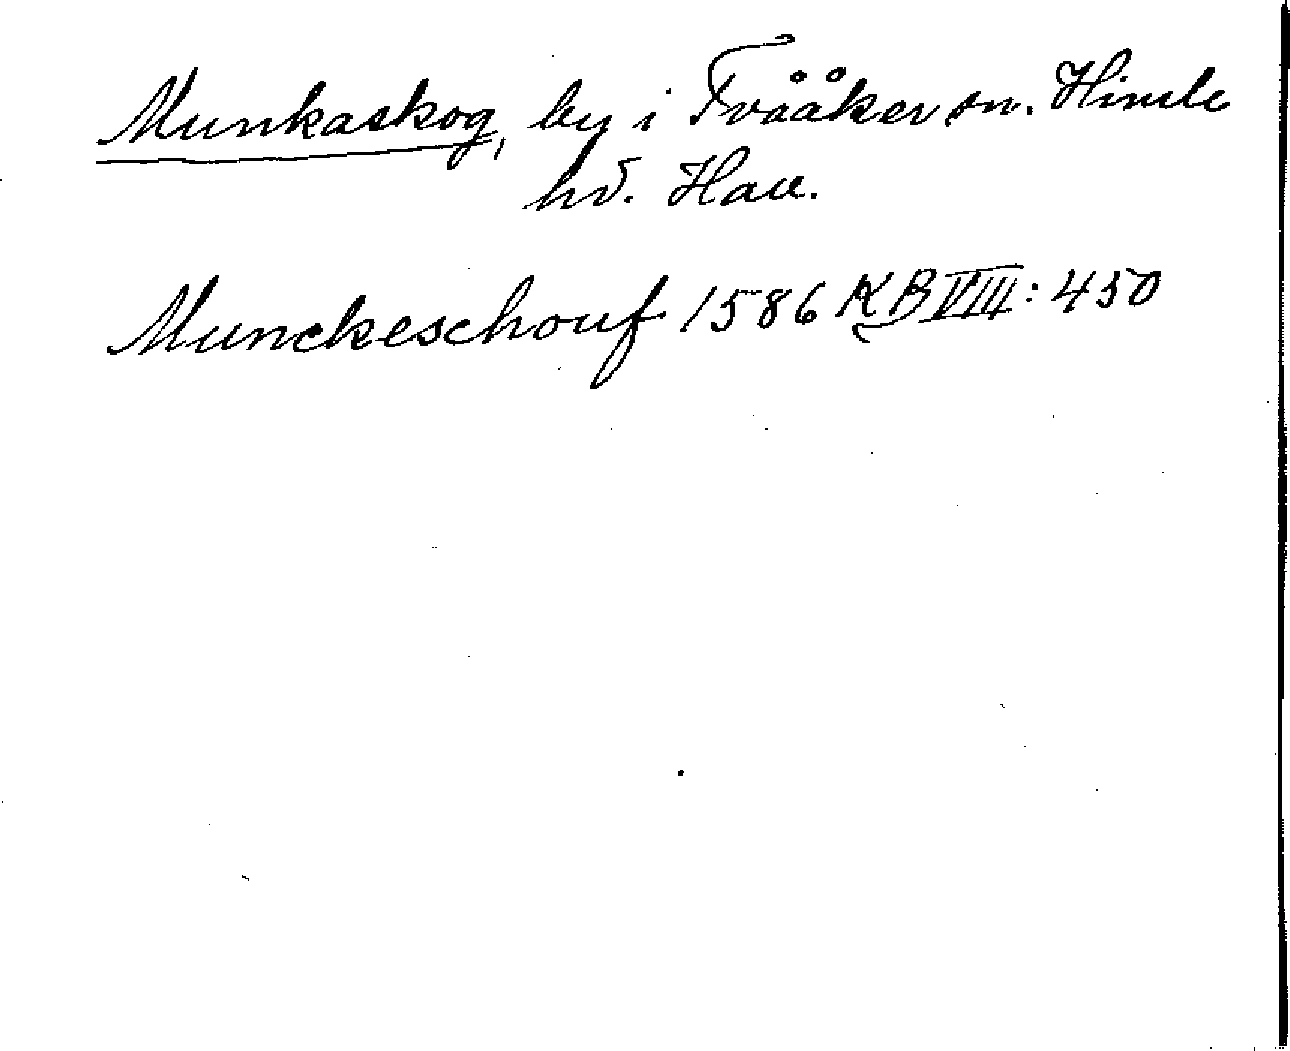 Munkaskog, by i Tvååker sn. Himle
hd. Hall.
Munckeschouf 1586 KB VIII: 450